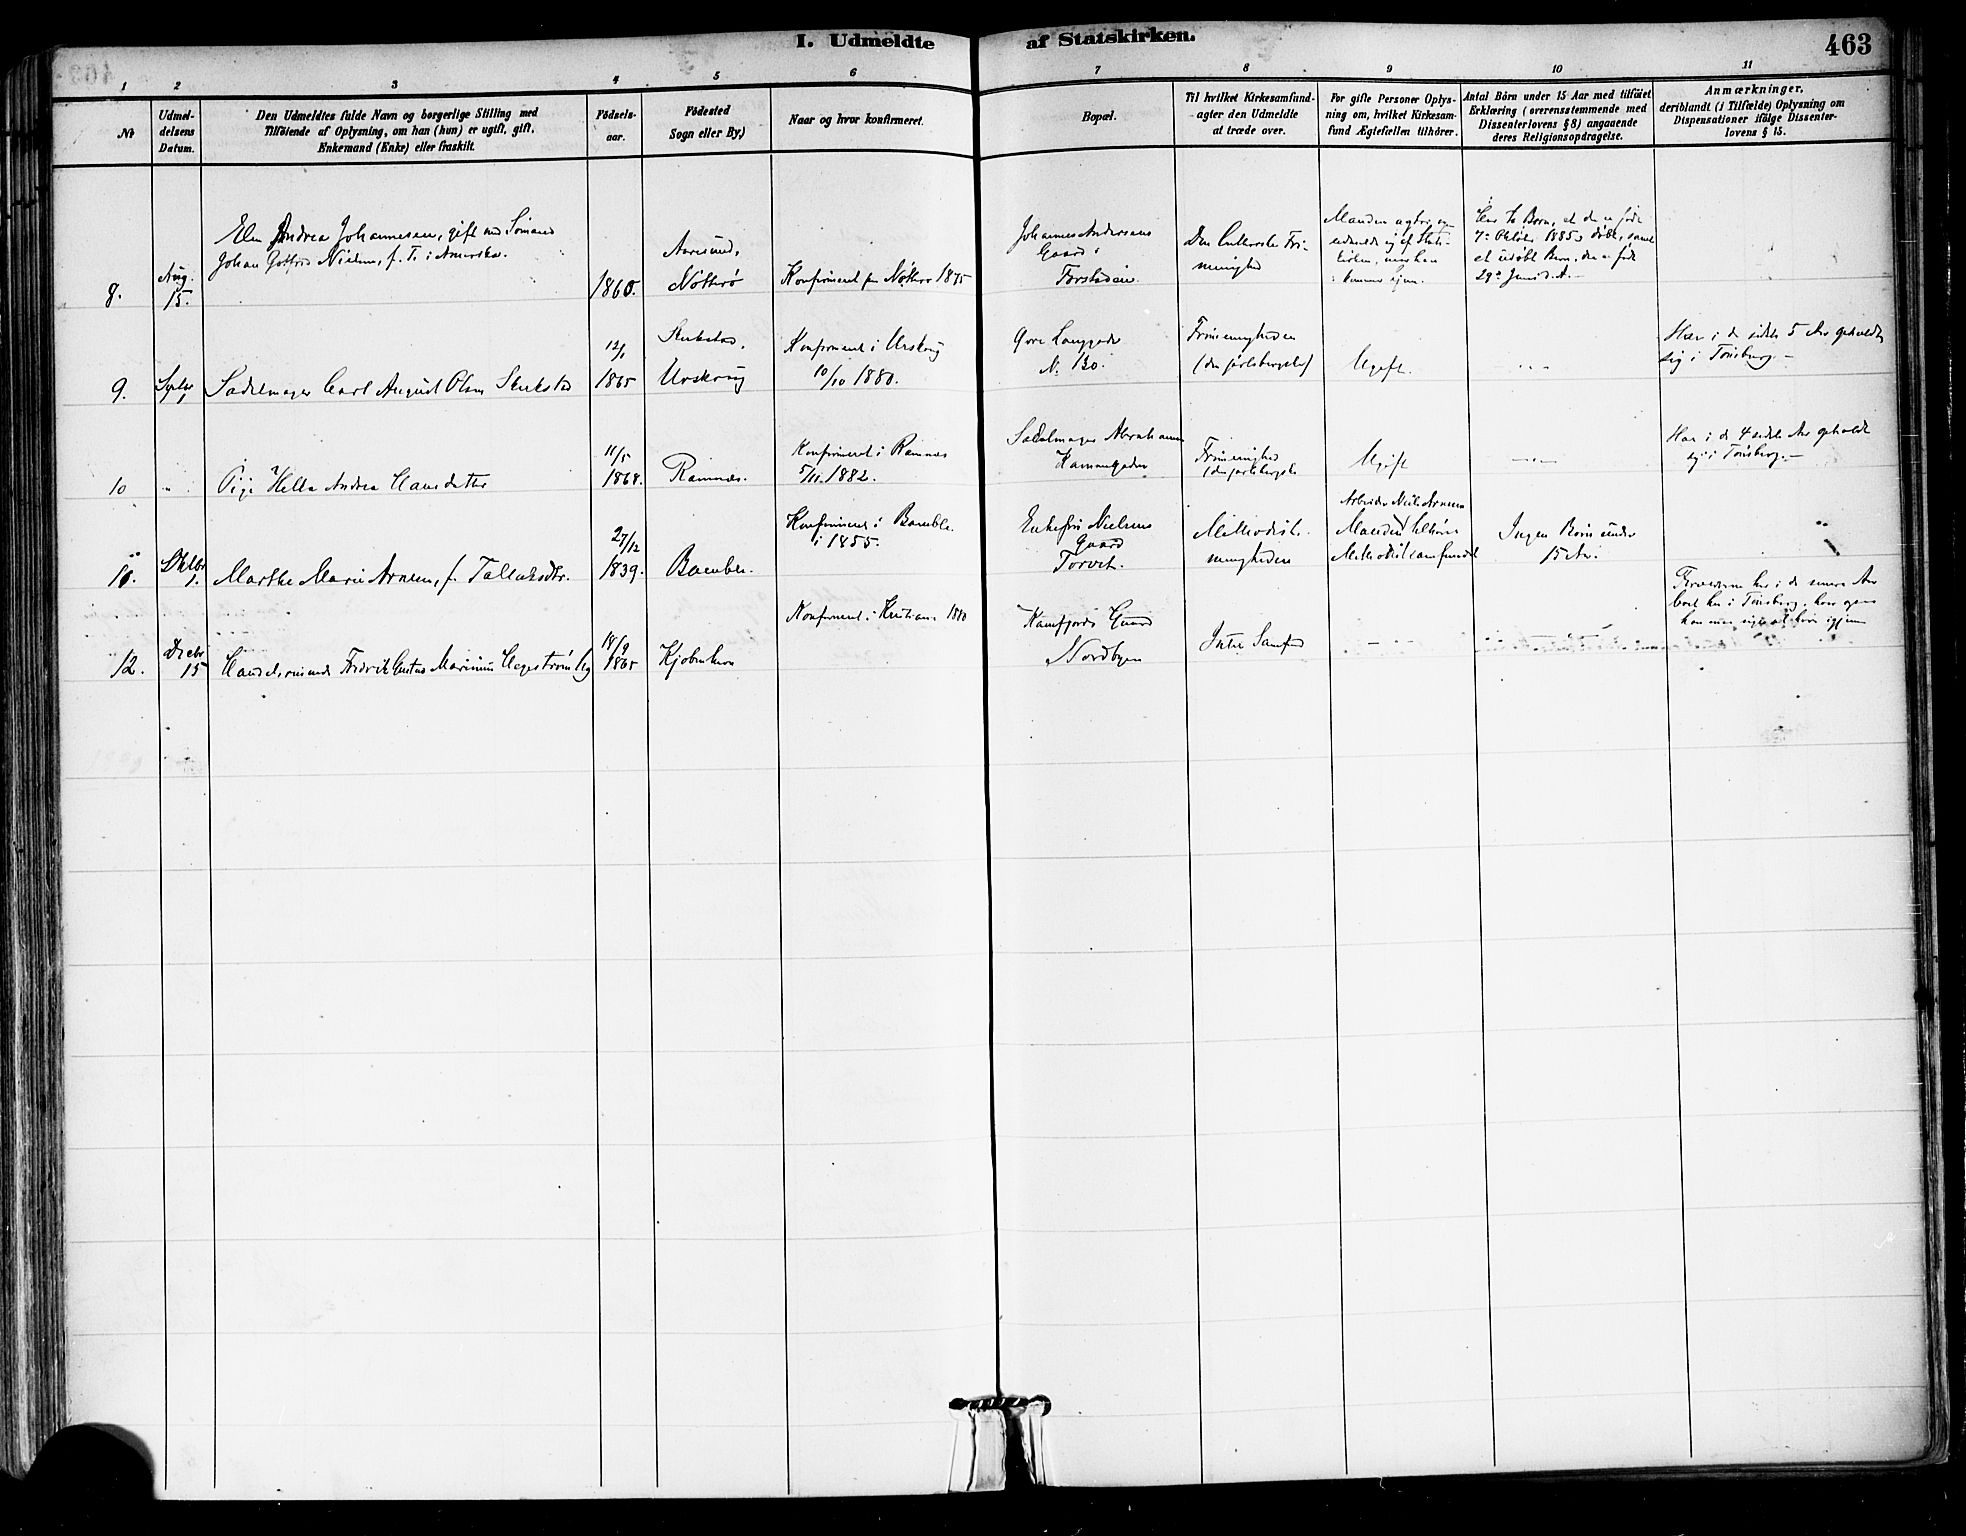 I. Udmeldte af Statskirken.
463
1 2 3 4 5 6 7 8 9 10 11
No
Udmel-
delsens
Datum.
Den Udmeldtes fulde Navn og borgerlige Stilling med
Tilföiende af Oplysning, om han (hun) er ugift, gift,
Enkemand (Enke) eller fraskilt.
Födsels-
aar.
Födested
Sogn eller By.)
Naar og hvor konfirmeret.
Bopæl.
Til hvilket Kirkesamfund
agter den Udmeldte
at træde over.
For gifte Personer Oplys-
ning om, hvilket Kirkesam-
fund Ægtefællen tilhörer.
Antal Börn under 15 Aar med tilföiet
Erklæring (overensstemmende med
Dissenterlovens § 8) angaaende
deres Religionsopdragelse.
Anmærkninger,
deriblandt (i Tilfælde) Oplysning om
Dispensationer ifölge Dissenter-
lovens § 15.
8.
Aug.
15.
Andrea Johannesen, gift med Sömand
Johan Gotfred Nielsen, f. T. i Amerika.
1860.
Aarsund,
Nötterö
Konfirmeret paa Nötterö 1875
Johannes Andersens
Gaard i
Den Lutherske Fri-
menighed
Manden agter, og
udmeldt ei af Stats-
kirken, naar han
kommer hjem.
Har to Börn, et der er födt
7de Oktober 1885 og döbt, samt
et udöbt Barn, der er födt
29de Juni d. A.
9.
Septbr
1
Sadelmager Carl August Olsen
12/1
1865
Urskoug
Konfirmeret i Urskoug
10/10 1880.
Övre Langgade
N. 130.
Frimenigheden
(den jarlsbergske)
Ugift.
Har i de sidste 5 Aar opholdt
sig i Tönsberg.
10
Pige Helle Andrea Hansdatter
11/5
1868.
Ramnæs.
Konfirmeret i Ramnæs
5/11. 1882.
Sadelmager Abrahamsen
Kammegaden
Frimenighed
(den jarlsbergske
Ugift
Har i de 4 sidste Aar opholdt
sig i Tönsberg.
11.
Oktbr
1.
Marthe Marie Arnesen, f. Talleksdtr.
27/12
1839.
Bamble.
Konfirmeret i Bamble
i 1855.
Enkefru Nielsens
Gaard
Torvet.
Methodist-
menigheden
Arbeider Nils Arnesen
Manden tilhörer
Methodistsamfundet
Ingen Börn under
15 Aar.
12.
Decbr
15
Handelsreisende Fredrik Gustav Marinius Hagström Ug
18/9
1865
Kjöbenhavn
Konfirmeret i Kristiania 1880
Kamfjords Gaard
Nordbyen
Intet Samfund
har i de senere Aar
boet her i Tönsberg, hvor ogsaa